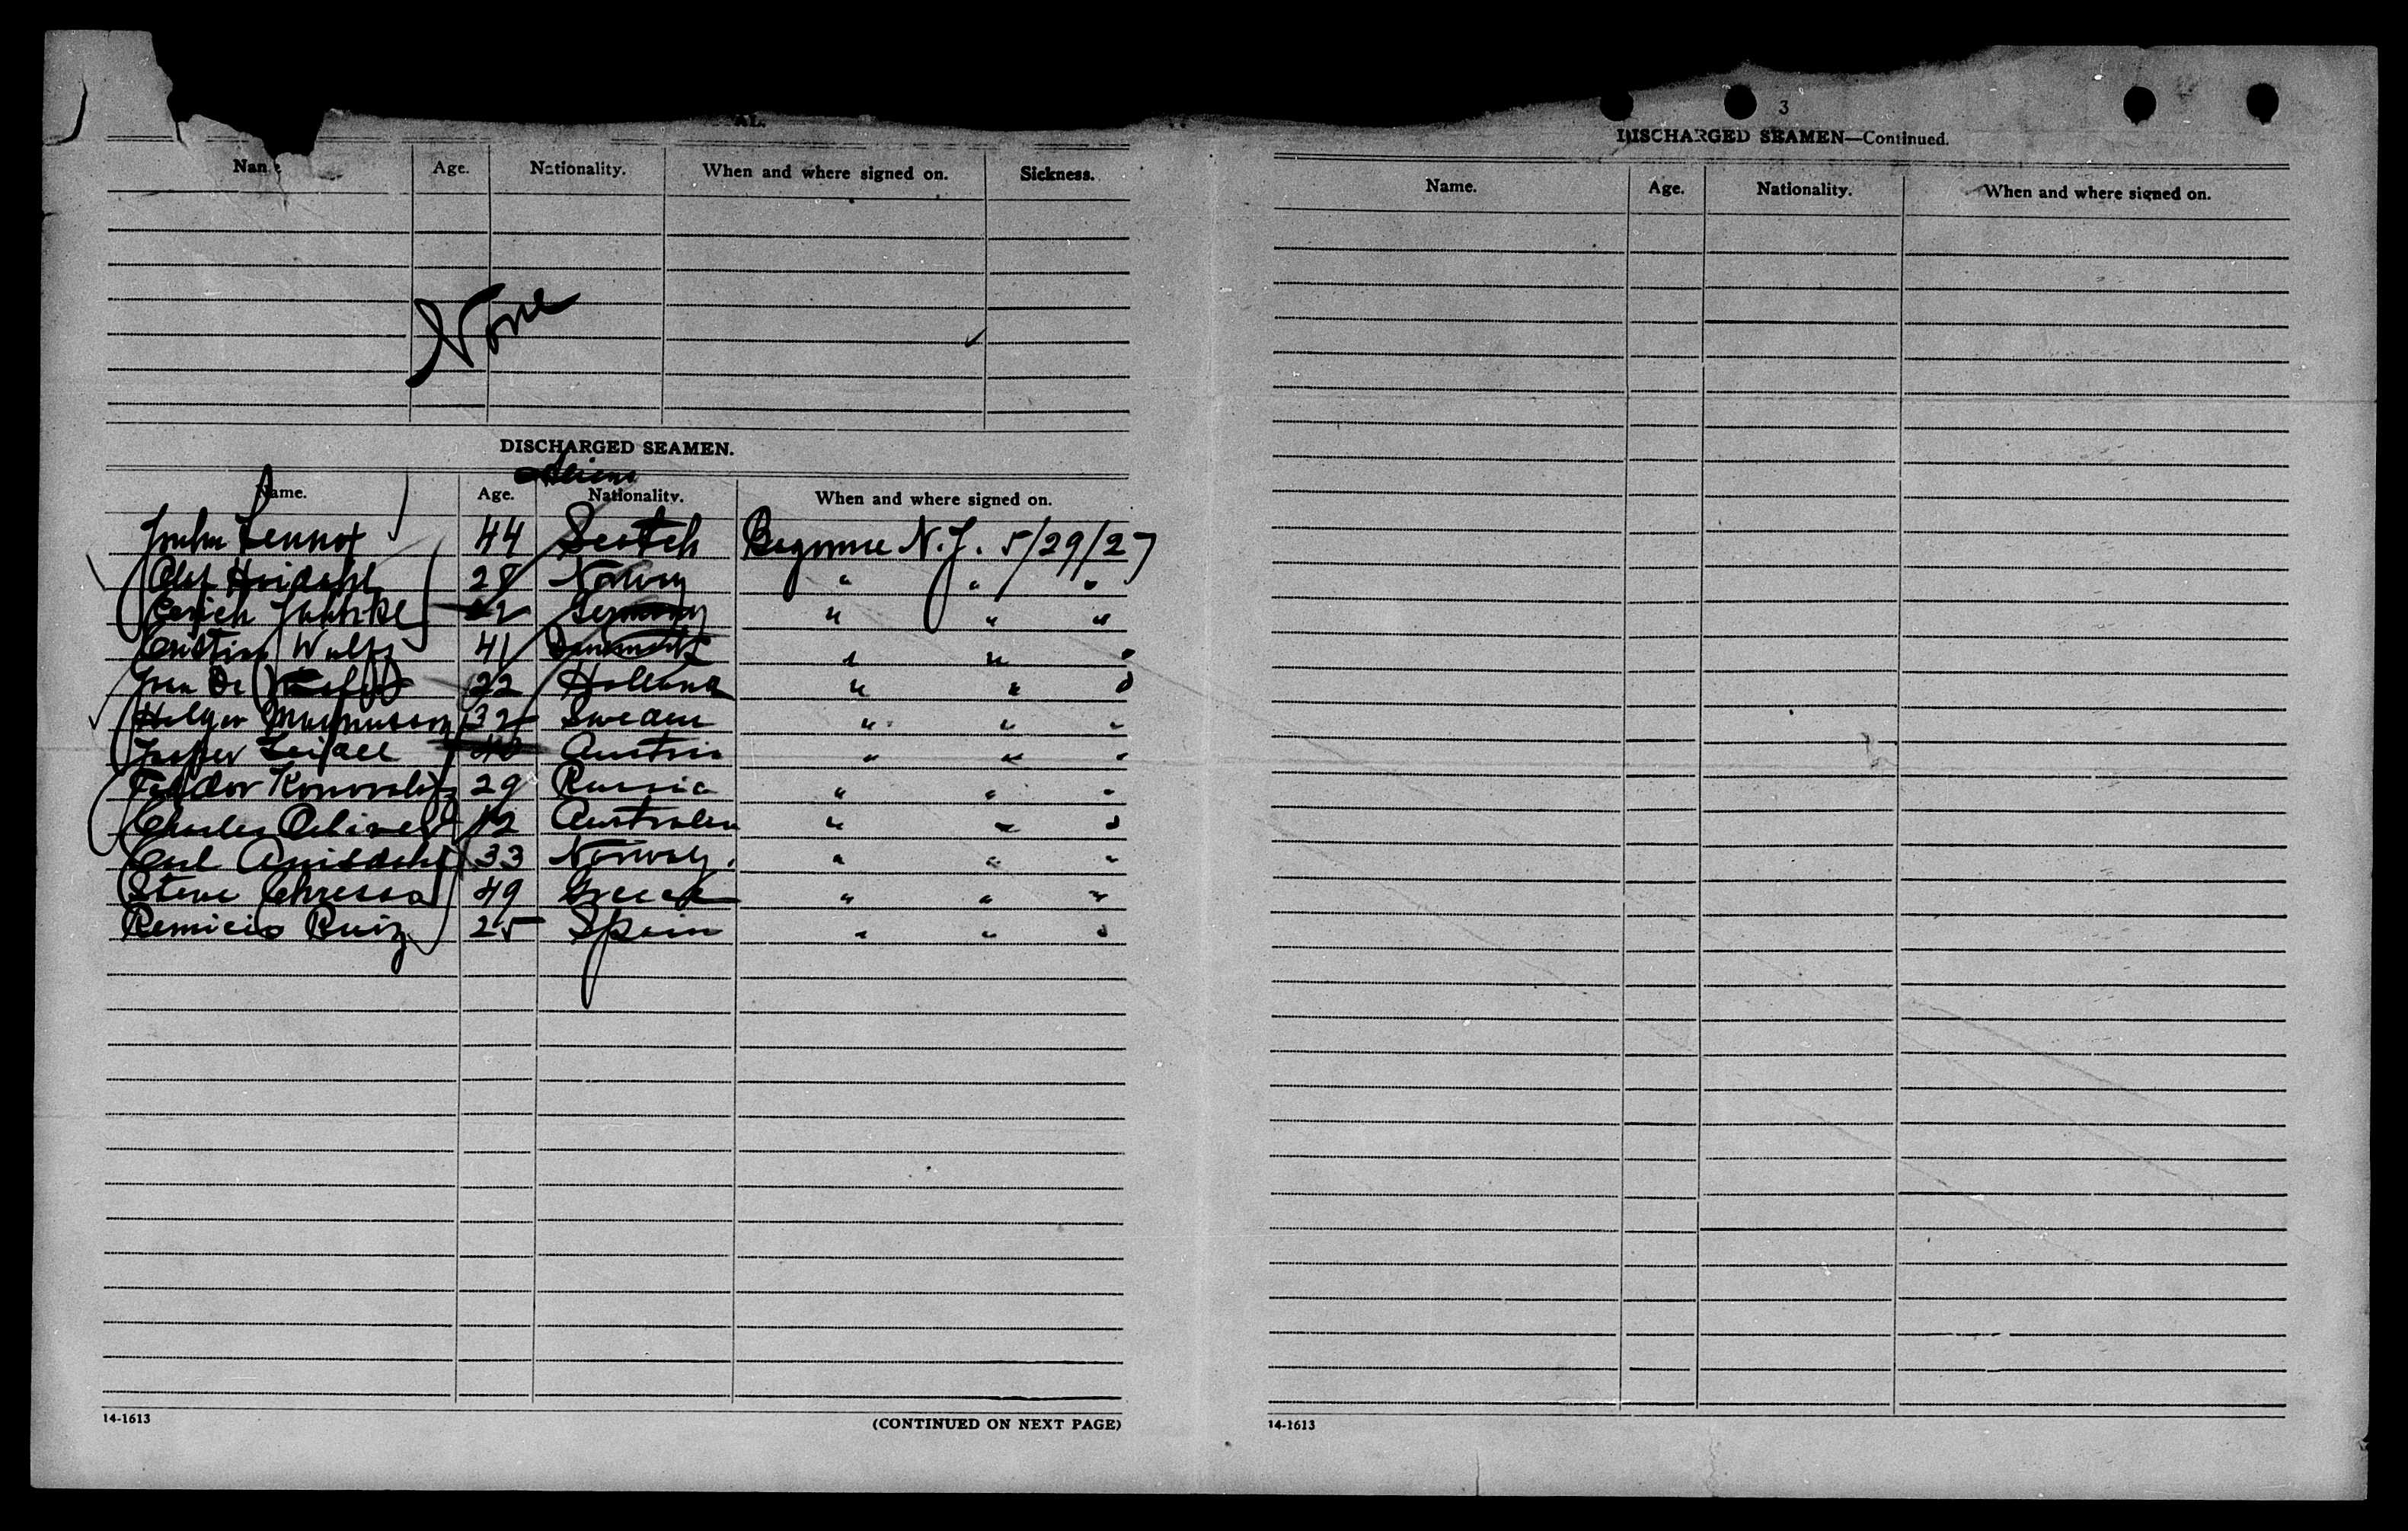 AL.
Name Age. Nationality. When and where signed on. Sickness.
None
DISCHARGED SEAMEN.
Aliens
Name. Age. Nationality. When and where signed on.
John Lennox 44 Scotch Bayonne N.J. 5/29/27
Olaf 28 Norway " " "
Erich Germany " " "
Wulff 41 " " "
De 22 Holland " " "
Holger Magnusson 32 Sweden " " "
40 Austria " " "
29 Russia " " "
Charles Australia " " "
Carl 33 Norway. " " "
Steve 49 Greece " " "
Remicio Ruiz 25 Spain " " "
14-1613
(CONTINUED ON NEXT PAGE)
3
DISCHARGED SEAMEN—Continued.
Name. Age. Nationality. When and where signed on.
14-1613